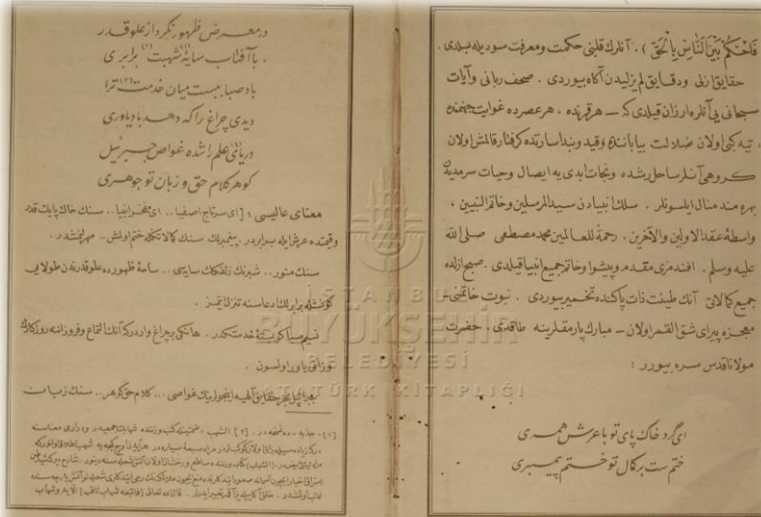 فَاحْكُمْ بَيْنَ النَّاسِ بِالْحَقِّ) . آنلرك قلبنى حكمت ومعرفت سوديله بسلدى .
حقايق ازلى ودقايق لم يزليدن آگاه بيوردى . صحف ربانى وآيات
سبحانى يى آنلره ارزان قيلدى كه — هر قرنده ، هر عصرده غوايت جهنمنده
تيه كبى اولان ضلالت بياباننده وقيد وبند اسارتده گرفتار قالمش اولان
گروهى آنلر ساحل رشده ونجات ابدى يه ايصال وحيات سرمديدن
بهره مند منال ايلسونلر . سلك انبيادن سيد المرسلين وخاتم النبيين ،
واسطهٔ عقد الاولين والآخرين ، رحمةً للعالمين محمد مصطفى صلى الله
عليه وسلم . افندمزى مقدم وپيشوا وخاتم جميع انبيا قيلدى . صبح ازلده
جميع كمالاتى آنك طينت ذات پاكنده تخمير بيوردى . نبوت خاتمنى —
معجزه پيراى شق القمر اولان — مبارك پارمقلرينه طاقدى . حضرت
مولانا قدس سره بيورر :
اى گرد خاك پاى تو با عرش همسرى
ختم ست بر كمال تو ختم پيمبرى
در معرض ظهور نكرد از علو قدر
با آفتاب سايهٔ شهبت (١) برابرى
باد صباء بست ميان خدمت (٣) ترا
ديدى چراغ را كه دهد باد ياورى
درياى علم را شده غواص جبرئيل
گوهر كلام حق و زبان تو جوهرى
معناى عاليسى : [اى سرتاج اصفيا .. اى مفخر انبيا .. سنك خاك پايك قدر
وقيمتده عرش ايله برابردر . پيغمبرلك سنك كمالاتكله ختم اولمش — مهرلنمشدر .
سنك منور .. شبرنك زلفكك سايه سى .. ساحهٔ ظهورده علو قدرندن طولايى
گونشله برابرلك ادعاسنه تنزل ايتمز .
نسيم صبا كمر بستهٔ خدمتكدر . هانكى بر چراغ واردر كه آنك التماع وفروزاننه روزگار
نورانى ياور اولسون .
جبرائيل بحر حقايق آلهيه اينجولرينك غواصى ... كلام حق گوهر .. سنك زبانك
İSTANBUL
BÜYÜKŞEHİR
BELEDİYESİ
ATATÜRK KİTAPLIĞI